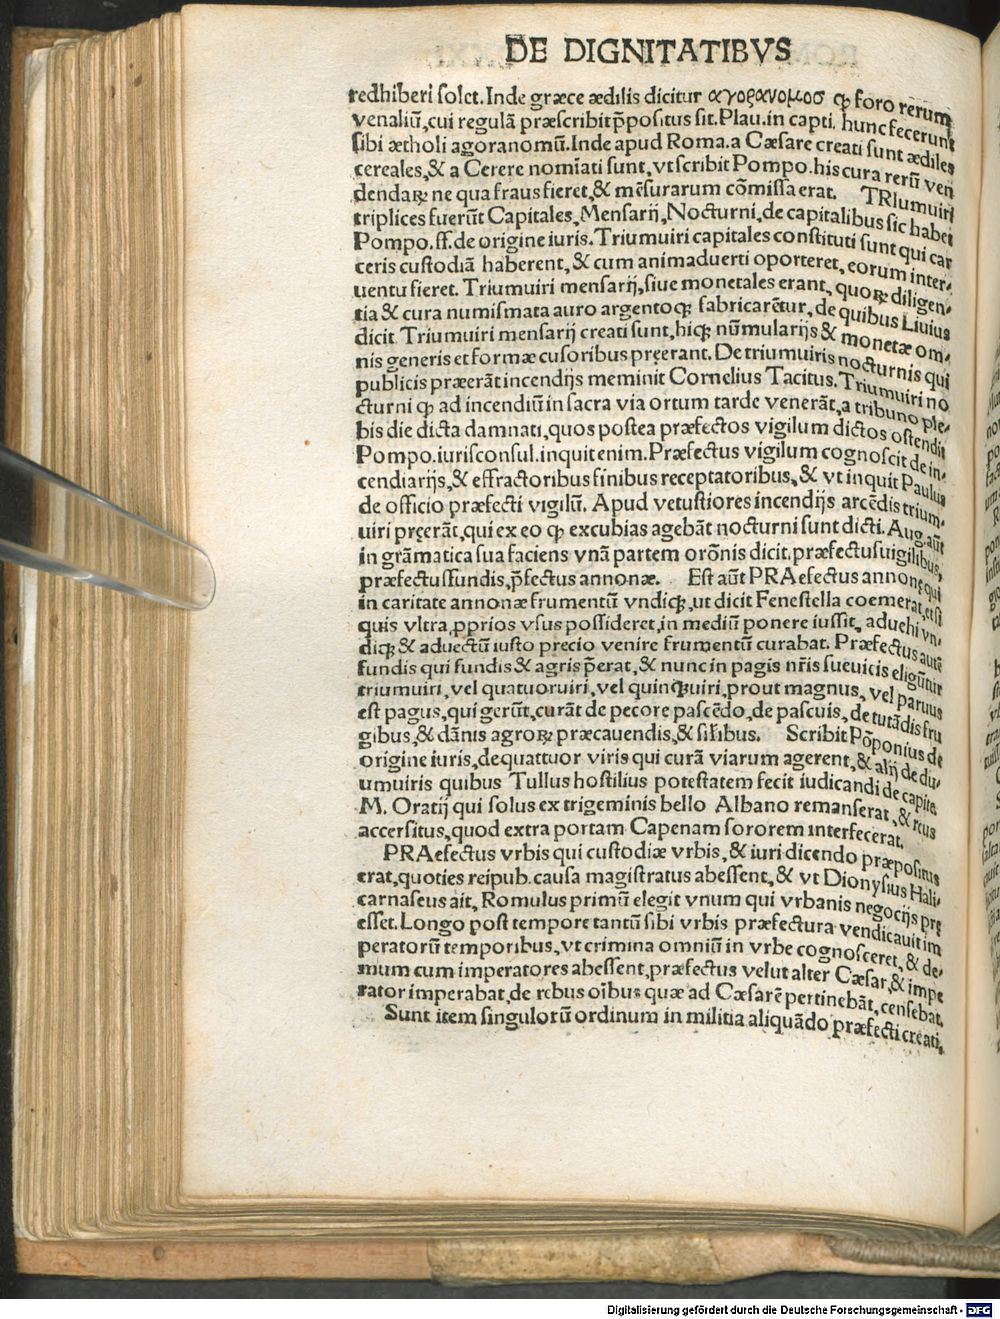 DE DIGNITATIBVS
redhiberi solet. Inde græce ædilis dicitur αγορανομοσ ꝙ foro rerum
venaliū, cui regulā præscribit p̄positus sit. Plau. in capti. hunc fecerunt
sibi ætholi agoranomū. Inde apud Roma. a Cæsare creati sunt ædiles
cereales, & a Cerere nomīati sunt, vt scribit Pompo. his cura rerū ven
dendaꝝ ne qua fraus fieret, & mēsurarum cōmissa erat. TRIumuiri
triplices fuerūt Capitales, Mensarij, Nocturni, de capitalibus sic habet
Pompo. ff. de origine iuris. Triumuiri capitales constituti sunt qui car
ceris custodiā haberent, & cum animaduerti oporteret, eorum inter-
uentu fieret. Triumuiri mensarij, siue monetales erant, quoꝝ diligen-
tia & cura numismata auro argentoqꝫ fabricarētur, de quibus Liuius
dicit Triumuiri mensarij creati sunt, hiqꝫ nūmularijs & monetæ om-
nis generis et formæ cusoribus pręerant. De triumuiris nocturnis qui
publicis præerāt incendijs meminit Cornelius Tacitus. Triumuiri no
cturni ꝙ ad incendiū in sacra via ortum tarde venerāt, a tribuno ple-
bis die dicta damnati, quos postea præfectos vigilum dictos ostendit
Pompo. iurisconsul. inquit enim. Præfectus vigilum cognoscit de in-
cendiarijs, & effractoribus finibus receptatoribus, & vt inquit Paulus
de officio præfecti vigilū. Apud vetustiores incendijs arcēdis trium-
uiri pręerāt, qui ex eo ꝙ excubias agebāt nocturni sunt dicti. Aug. aūt
in grāmatica sua faciens vnā partem orōnis dicit. præfectusuigilibus,
præfectussundis, p̄fectus annonæ. Est aūt PRAefectus annonę qui
in caritate annonæ frumentū vndiqꝫ, ut dicit Fenestella coemerat, et si
quis vltra, ꝓprios vsus possideret, in mediū ponere iussit, aduehi vn-
diqꝫ & aduectū iusto precio venire frumentū curabat. Præfectus autē
fundis qui fundis & agris p̄erat, & nunc in pagis nr̄is sueuicis eligūtur
triumuiri, vel quatuoruiri, vel quinqꝫuiri, prout magnus, vel paruus
est pagus, qui gerūt, curāt de pecore pascēdo, de pascuis, de tutādis fru
gibus, & dānis agroꝝ præcauendis, & sil̄ibus. Scribit Pōponius de
origine iuris, de quattuor viris qui curā viarum agerent, & alij de du-
umuiris quibus Tullus hostilius potestatem fecit iudicandi de capite
M. Oratij qui solus ex trigeminis bello Albano remanserat, & reus
accersitus, quod extra portam Capenam sororem interfecerat.
PRAefectus vrbis qui custodiæ vrbis, & iuri dicendo præpositus
erat, quoties reipub. causa magistratus abessent, & vt Dionysius Hali-
carnaseus ait, Romulus primū elegit vnum qui vrbanis negocijs pre
esset. Longo post tempore tantū sibi vrbis præfectura vendicauit im
peratorū temporibus, vt crimina omniū in vrbe cognosceret, & de-
mum cum imperatores abessent, præfectus velut alter Cæsar, & impe
rator imperabat, de rebus oībus quæ ad Cæsarē pertinebāt, censebat.
Sunt item singulorū ordinum in militia aliquādo præfecti creati,
Digitalisierung gefördert durch die Deutsche Forschungsgemeinschaft - DFG